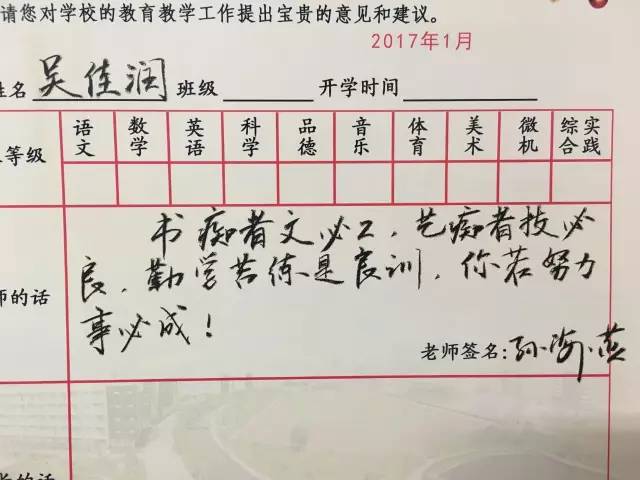 请您对学校的教育教学工作提出宝贵的意见和建议。
2017年1月
姓名 吴佳润 班级 开学时间
等级 语文 数学 英语 科学 品德 音乐 体育 美术 微机 综合实践
书痴者文必工，艺痴者技必
良，勤学苦练是良训，你若努力
事必成！
师的话
老师签名：孙海燕
长的话